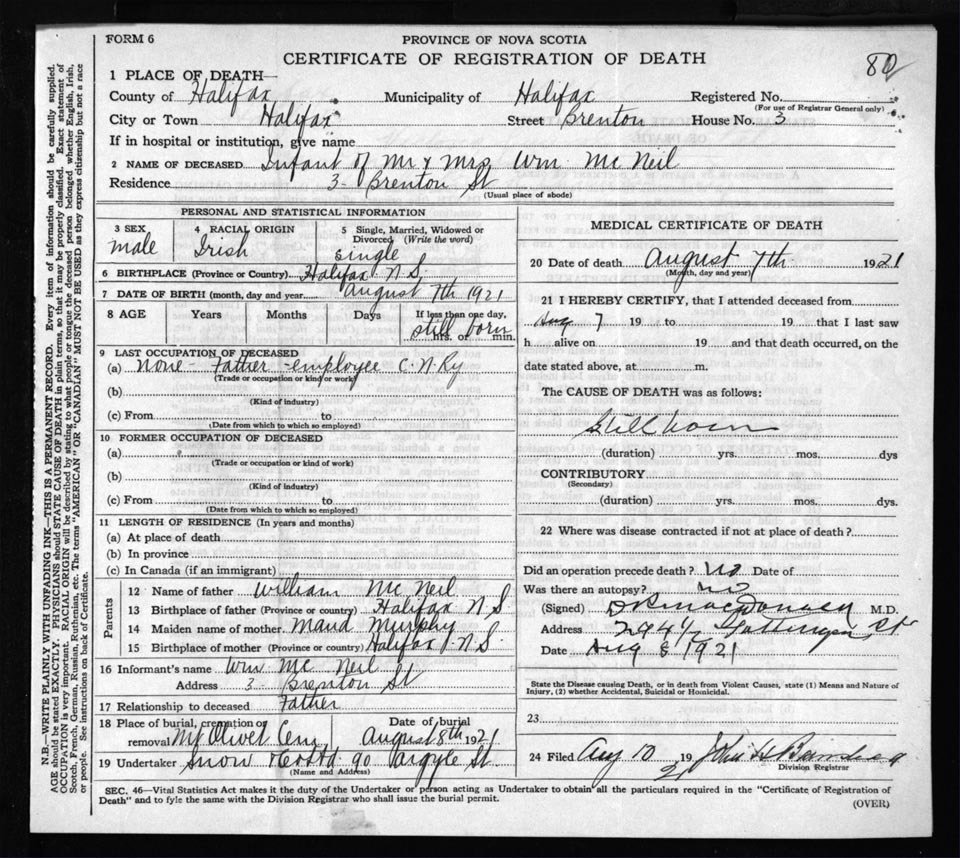 FORM 6
PROVINCE OF NOVA SCOTIA
CERTIFICATE OF REGISTRATION OF DEATH
80
1 PLACE OF DEATH—
County of Halifax Municipality of Halifax Registered No.
(For use of Registrar General only)
City or Town Halifax Street Brenton House No. 3
If in hospital or institution, give name
2 NAME OF DECEASED Infant of Mr & Mrs Wm. Mc Neil
Residence 3- Brenton St
(Usual place of abode)
PERSONAL AND STATISTICAL INFORMATION
3 SEX
male
4 RACIAL ORIGIN
Irish
5 Single, Married, Widowed or
Divorced (Write the word)
single
6 BIRTHPLACE (Province or Country) Halifax N.S.
7 DATE OF BIRTH (month, day and year) August 7th 1921
8 AGE Years Months Days If less than one day,
still born
hrs. or min.
9 LAST OCCUPATION OF DECEASED
(a) None - Father - employee C.N.Ry
(Trade or occupation or kind of work)
(b)
(Kind of industry)
(c) From to
(Date from which to which so employed)
10 FORMER OCCUPATION OF DECEASED
(a)
(Trade or occupation or kind of work)
(b)
(Kind of industry)
(c) From to
(Date from which to which so employed)
11 LENGTH OF RESIDENCE (In years and months)
(a) At place of death
(b) In province
(c) In Canada (if an immigrant)
Parents
12 Name of father William Mc Neil
13 Birthplace of father (Province or country) Halifax N.S
14 Maiden name of mother Maud Murphy
15 Birthplace of mother (Province or country) Halifax N.S
16 Informant's name Wm Mc Neil
Address 3- Brenton St
17 Relationship to deceased Father
18 Place of burial, cremation or
removal Mt Olivet Cem
Date of burial
August 8th 1921
19 Undertaker Snow & Co Ltd. 90 Argyle St.
(Name and Address)
MEDICAL CERTIFICATE OF DEATH
20 Date of death August 7th 1921
(Month, day and year)
21 I HEREBY CERTIFY, that I attended deceased from
Aug 7 19 to 19 that I last saw
h alive on 19 and that death occurred, on the
date stated above, at m.
The CAUSE OF DEATH was as follows:
Stillborn
(duration) yrs. mos. dys
CONTRIBUTORY
(Secondary)
(duration) yrs. mos. dys.
22 Where was disease contracted if not at place of death?
Did an operation precede death? No Date of
Was there an autopsy? no
(Signed) MacDonald M.D.
Address 294½ Gottingen St
Date Aug 8 1921
State the Disease causing Death, or in death from Violent Causes, state (1) Means and Nature of
Injury, (2) whether Accidental, Suicidal or Homicidal.
23
24 Filed Aug 10 1921 John H
Division Registrar
SEC. 46—Vital Statistics Act makes it the duty of the Undertaker or person acting as Undertaker to obtain all the particulars required in the "Certificate of Registration of
Death" and to fyle the same with the Division Registrar who shall issue the burial permit.
(OVER)
N.B.—WRITE PLAINLY WITH UNFADING INK—THIS IS A PERMANENT RECORD. Every item of information should be carefully supplied.
AGE should be stated EXACTLY. PHYSICIANS should STATE CAUSE OF DEATH in plain terms, so that it may be properly classified. Exact statement of
OCCUPATION is very important. RACIAL ORIGIN will be described by stating to what people or tongue the deceased person belonged whether English, Irish,
Scotch, French, German, Russian, Ruthenian, etc. The terms "AMERICAN" OR "CANADIAN" MUST NOT BE USED as they express citizenship but not a race
or people. See instructions on back of Certificate.